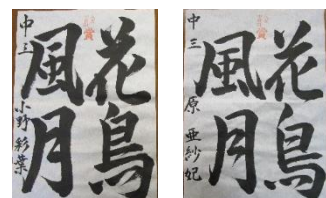 花鳥
風月
中三 小野彩葉
賞
花鳥
風月
中三 原亜紗妃
賞